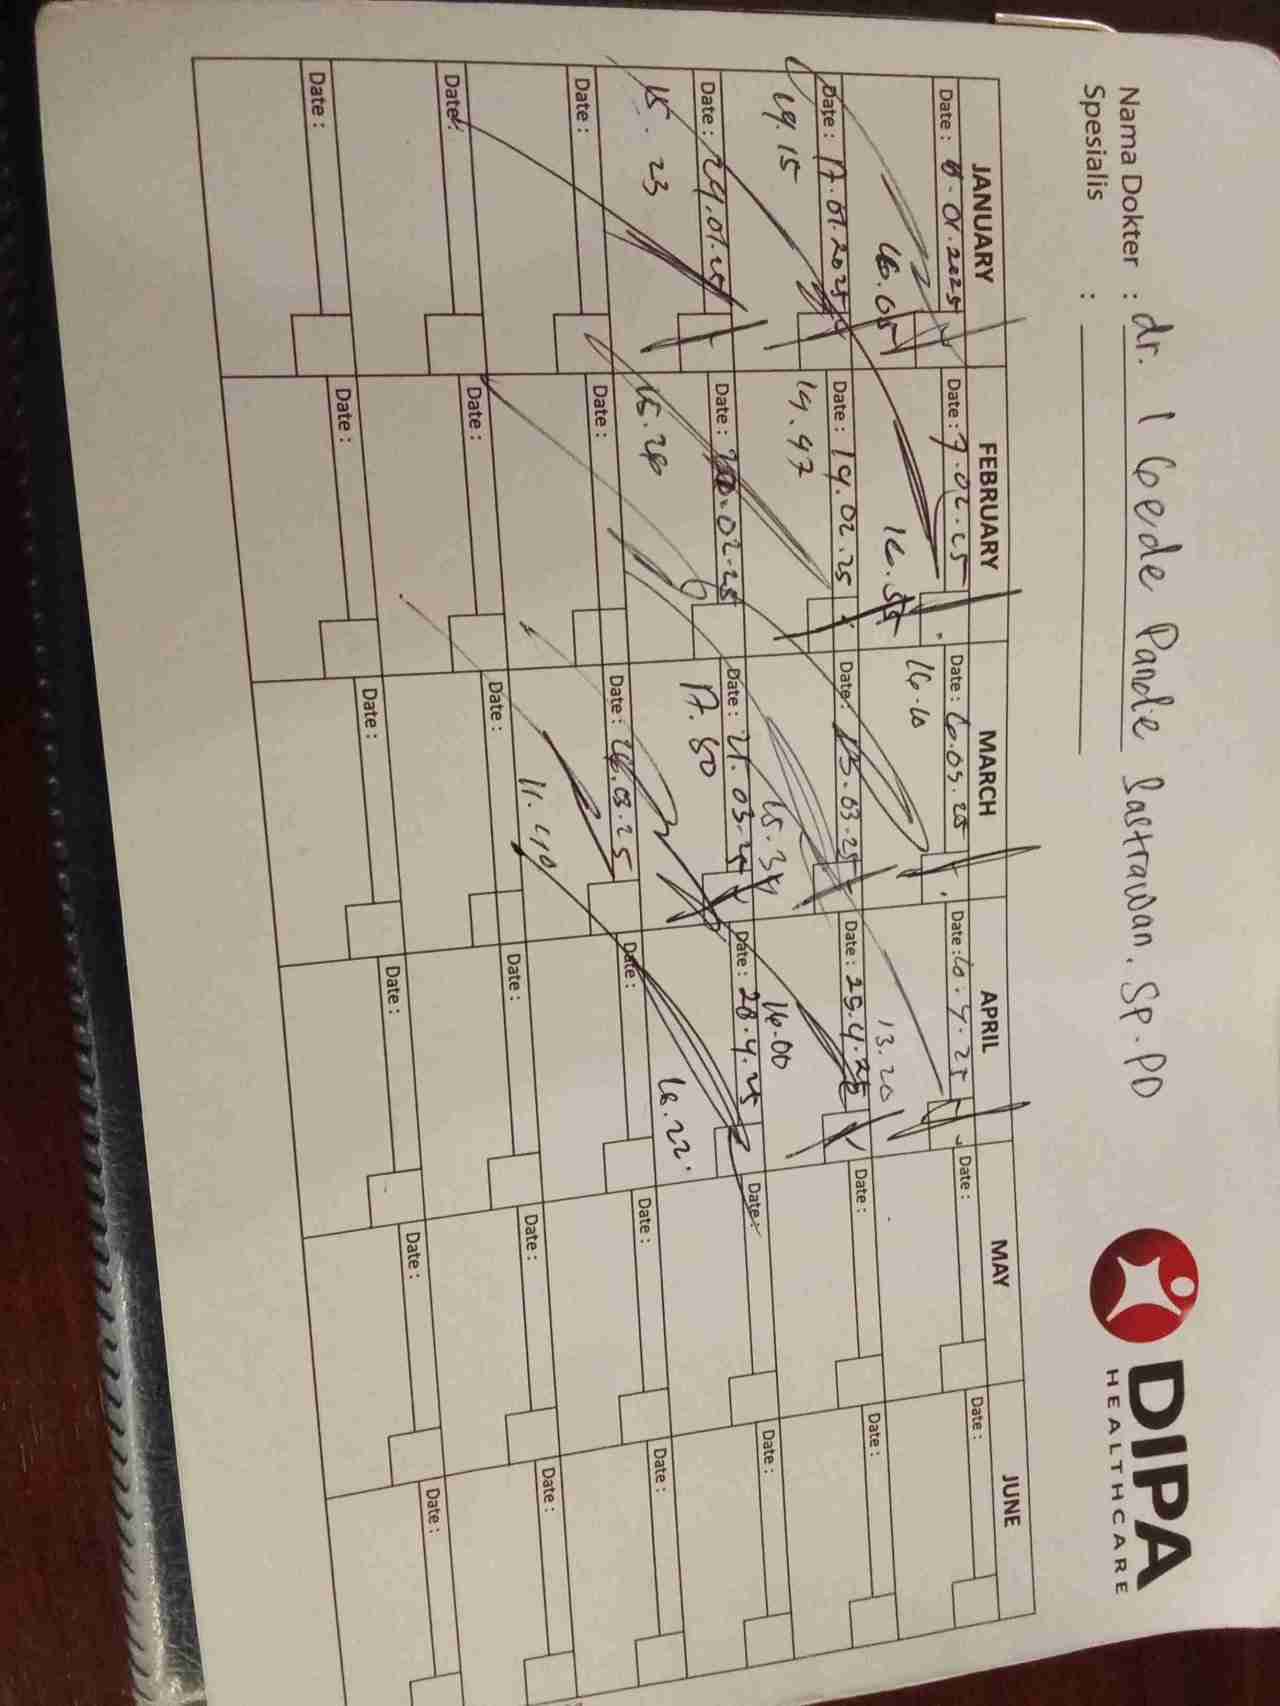 Nama Dokter : dr. I Gede Pande Sastrawan. Sp.PD
Spesialis :
DIPA
HEALTHCARE
JANUARY FEBRUARY MARCH APRIL MAY JUNE
Date : 8.01.2025 Date : 7.02.25 Date : 6.03.25 Date : 10.4.25 Date : Date :
16.05 16.55 16.10 13.20
Date : 17.01.2025 Date : 14.02.25 Date : 13.03.25 Date : 25.4.25 Date : Date :
14.15 14.47 15.34 16.00
Date : 24.01.25 Date : 02.25 Date : 21.03.25 Date : 28.4.25 Date : Date :
15.23 15.26 17.50 16.22
Date : Date : Date : 26.03.25 Date : Date : Date :
11.40
Date : Date : Date : Date : Date : Date :
Date : Date : Date : Date : Date : Date :